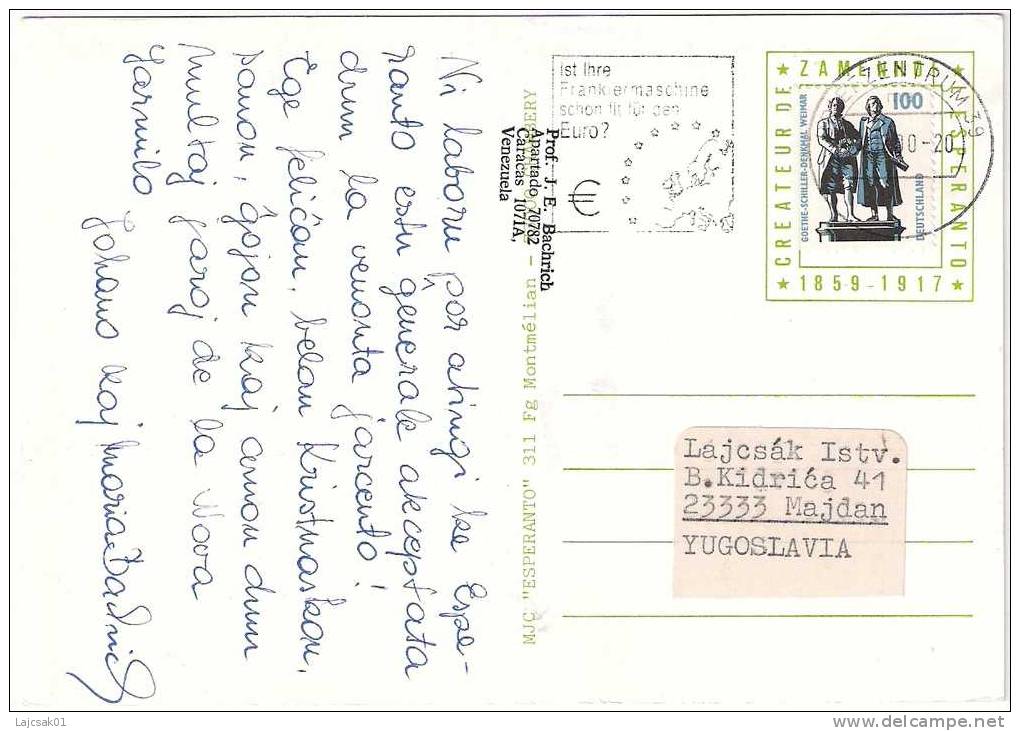 Ni laboru por atingi ke Espe-
ranto estu ĝenerale akceptata
dum la venonta jarcento!
Ege feliĉan, belan Kristnaskon,
sanon, ĝojon kaj amon dum
multaj jaroj de la Nova
Jarmilo
Johano kaj Maria Bachrich
MJC "ESPERANTO" 311 Fg Montmélian -
Prof. J. E. Bachrich
Apartado 70782
Caracas 1071A,
Venezuela
ist Ihre
Frankiermaschine
schon fit für den
Euro?
ZENTRUM 39
00-20
★ ZAMENHOF ★
CREATEUR DE
ESPERANTO
★ 1859-1917 ★
100
GOETHE-SCHILLER-DENKMAL WEIMAR
DEUTSCHLAND
Lajcsák Istv.
B.Kidrića 41
23333 Majdan
YUGOSLAVIA
Lajcsak01
www.delcampe.net